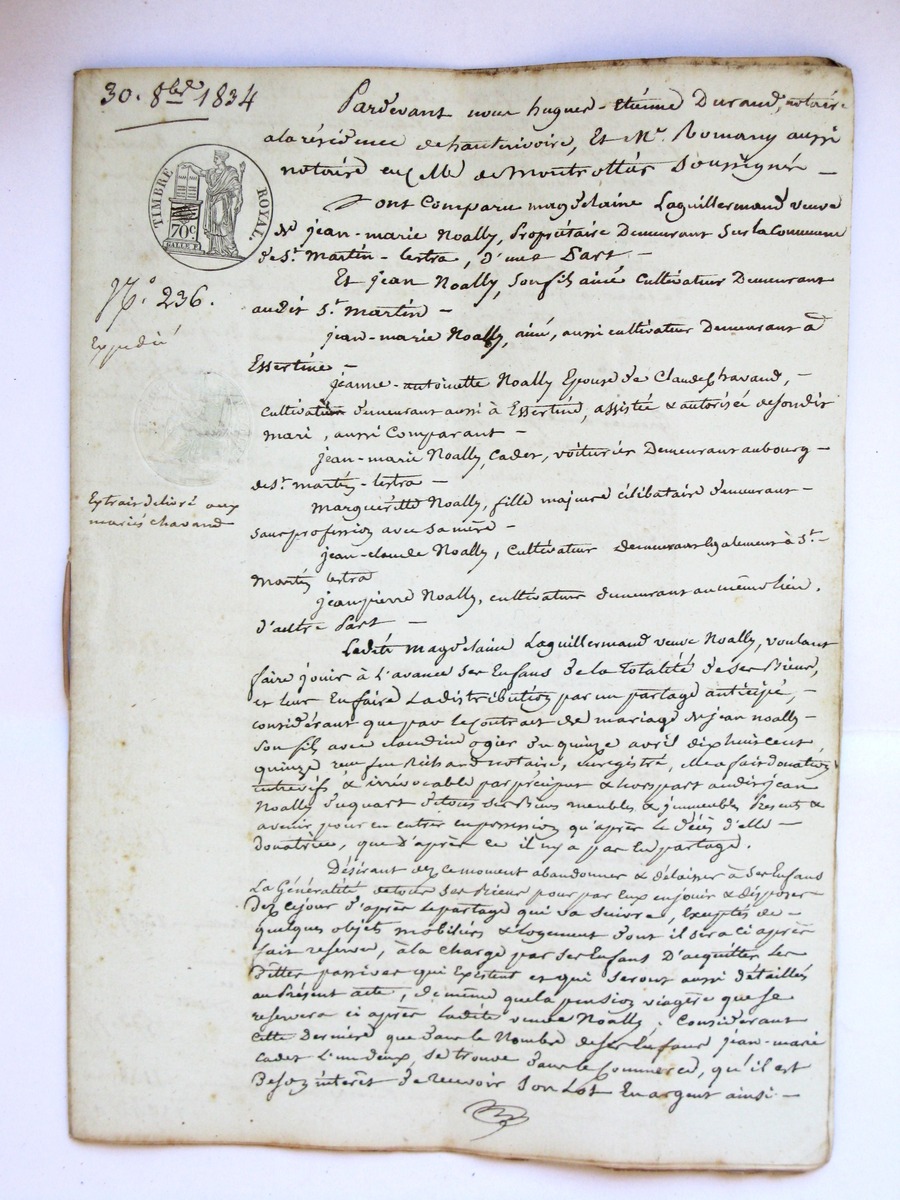 30. 8bre 1834
TIMBRE ROYAL.
70c
SALLE F.
No. 236.
Expedié
Extrait délivré aux
mariés chavand
Pardevant nous hugues-Etiénne Durand, notaire
a la résidence de hauterivoire, Et Mr. Romany aussi
notaire en celle de Montrottier Soussignés —
Sont Comparu magdelaine Laguillermand veuve
de jean-marie Noally, Propriétaire Demeurant Sur la Commune
de St. Martin-lestra, d'une Part —
Et jean Noally, Son fils ainé cultivateur Demeurant
audit St. martin —
jean-marie Noally, ainé, aussi cultivateur Demeurant à
Essertine —
jeanne-antoinette Noally Epouse de Claude Chavand, —
cultivateur demeurant aussi à Essertine, assistée & autorisée de sondit
mari, aussi Comparant —
jean-marie Noally, Cadet, voiturier Demeurant au bourg —
de St. martin-lestra —
Marguéritte Noally, fille majeure célibataire demeurant —
sans profession avec sa mère —
jean-claude Noally, Cultivateur Demeurant également à St. —
Martin lestra
jean pierre Noally, cultivateur demeurant au même lieu,
d'autre Part —
Ladite magdelaine Laguillermand veuve Noally, voulant
faire jouir à l'avance Ses Enfans de la Totalité de Ses Biens,
et leur En faire La distribution par un partage anticipé, —
considérant que par le Contrat de mariage de jean noally —
son fils avec claudine ogier du quinze avril dix huit cent
quinze reçu feu Richard notaire, Enregistré, Elle a fait donation
entrevifs & irrévocable par préciput & hors part audit jean
Noally du quart de tous Ses Biens meubles & immeubles Présents &
avenir, pour en entrer en possession qu'après le décès d'elle —
donatrice, que d'après ce il n'y a pas Eu partage.
Désirant dez ce moment abandonner & délaisser à Ses Enfans
La Généralité de tous Ses Biens pour par Eux en jouir & disposer
dez ce jour d'après le partage qui va Suivre, Exceptés de —
quelques objets mobiliers & logement dont il sera ci après
fait reserve, à la charge par ses Enfans D'acquitter les
Dettes passives qui Existent et qui seront aussi détaillés
au Présent acte, de même que la pension viagère que se
reservera ci après ladite veuve Noally; Considérant
cette Derniére que dans le Nombre de Ses Enfans jean-marie
cadet L'un deux, Se trouve dans le Commerce, qu'il est
Besoin intérêt de recevoir Son Lot En argent ainsi —